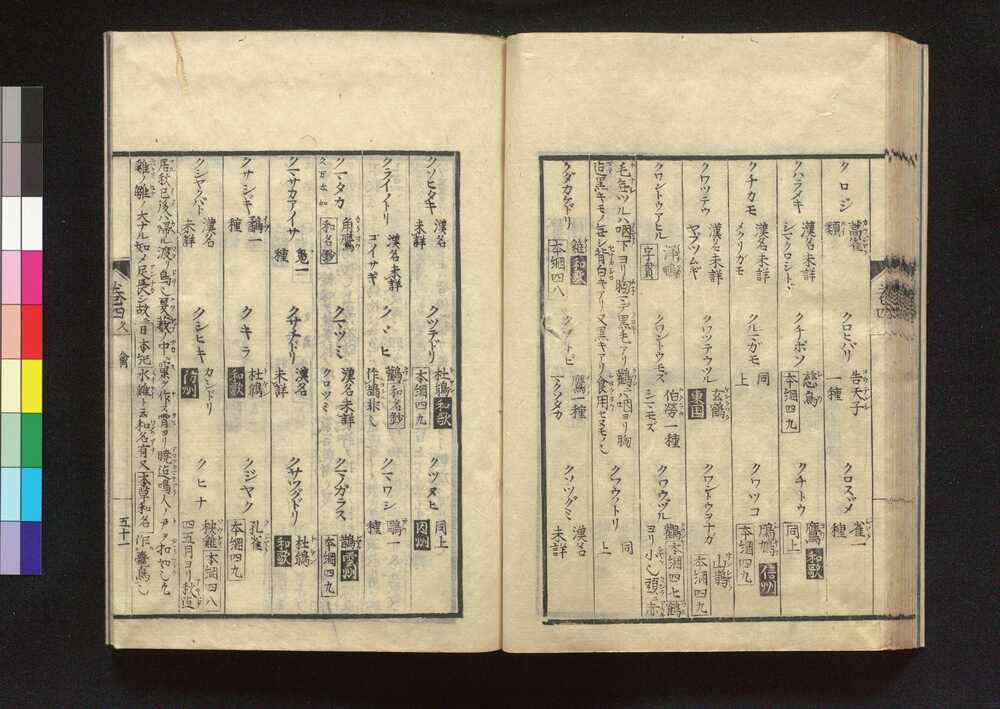 クロシ 蒿雀 類
クロヒバリ 告天子 一種
クロスヾメ 雀一 種
クハラメキ 漢名未詳 シマクロシトヾ
クチボソ 慈鳥 本綱四九
クチトウ 鷹 和歌 同上
クチカモ 漢名未詳 メクリガモ
クルマガモ 同 上
クワツコ 鳲鳩 信州 本綱四九
クワツテウ 漢名未詳 ヤブツムギ
クワツテウツル 玄鶴 東国
クワントウヨナガ 山鷓 本綱四九
クワントウアヒル 洋鴨 字貫
クワントウモズ 伯労一種 シマモズ
クワウヅル 鶴 本綱四七 鶴ヨリ小シ頭ニ赤
毛ナシツルハ咽下ヨリ胸マデ黒毛アリ鶴ハ咽ヨリ胸
迄黒キモノモナシ背白キアリ又黒キアリ食用セヌモノ也
クワウノトリ 同 上
クダカケドリ 鶏 和歌 本綱四八
クソトビ 鷹一種 クソタカ
クソツグミ 漢名 未詳
クソヒタキ 漢名 未詳
クツテドリ 杜鵑 和歌 本綱四九
クツヌヒ 同上 因州
クライノトリ 漢名未詳 ゴイサギ
クヽヒ 鵠 和名鈔 作鵠非也
クマワシ 鵰一 種
クマタカ 角鷹 和名鈔
久万太加
クマツミ 漢名未詳 クロツミ
クマガラス 鵲 雲州 本綱四九
クサカアイサ 鳧一 種
クサチドリ 漢名 未詳
クサツグドリ 杜鵑 和歌
クサシギ 鷸一 種
クキラ 杜鵑 和歌
クジヤク 孔雀 本綱四九
クジヤクバト 漢名 未詳
クシヒキ カシドリ 防州
クヒナ 秧鶏 本綱四八 四五月ヨリ秋迄
居秋已後ハ帰ル渡リ鳥也夏秧中ニ巣ヲ作ス宵ヨリ暁迄鳴人ノ戸ヲ扣如シ九
雞ノ雛ノ大ナル如メ尾長シ故ニ日本紀水雞ト云和名有又本草和名作鼃鳥也
巻四 久 禽 五十一